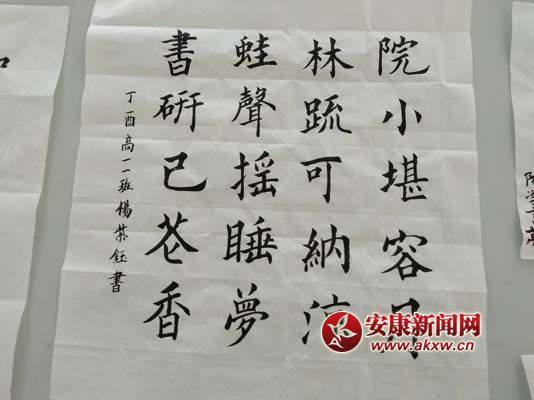 院小堪容月
林疏可納涼
蛙聲搖睡夢
書研已花香
丁酉高一一班楊紫鈺書
安康新闻网
www.akxw.cn